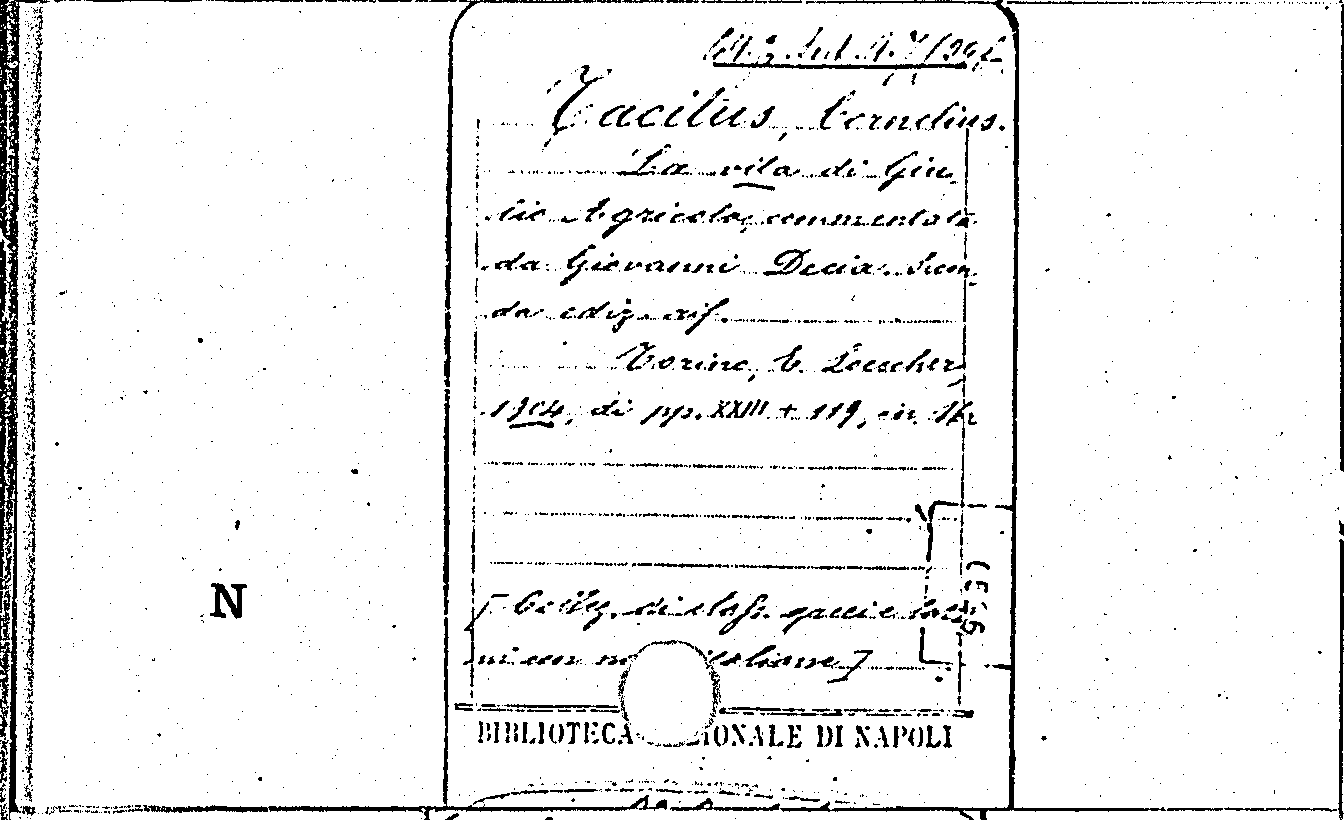 Tacitus, Cornelius.
La vita di Giu-
lio Agricola, commentata
da Giovanni Decia. Secon-
da ediz. rif.
Torino, E. Loescher,
1904, di pp. XXIII + 119, in 16.
[Collez. di class. greci e lati-
ni con note italiane]
BIBLIOTECA NAZIONALE DI NAPOLI
N